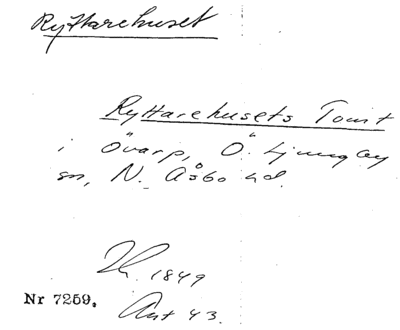 Ryttarehuset
Ryttarehusets Tomt
i Övarp, Ö. Ljungby
sn, N. Åsbo hd.
1849
Ant 43.
Nr 7259.